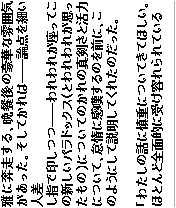 雅に奔走する、晩餐後の豪華な雰囲気
があった。そしてかれは——論点を細い
人差
し指で印しつつ——われわれが座ってこ
の新しいパラドックス(とわれわれが思っ
たもの)についてのかれの真剣さと活力
について、怠惰に感嘆するのを前に、こ
のようにして説明してくれたのだった。
「わたしの話に慎重についてきてほしい。
ほとんど全面的に受け容れられている